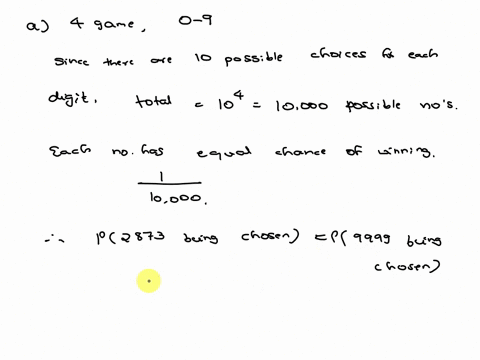 a) 4 game, 0-9
Since there are 10 possible choices for each
digit. total = 10^4 = 10,000 possible no's.
Each no. has equal chance of winning.
1
10,000.
∴ P(2873 being chosen) = P(9999 being
chosen)